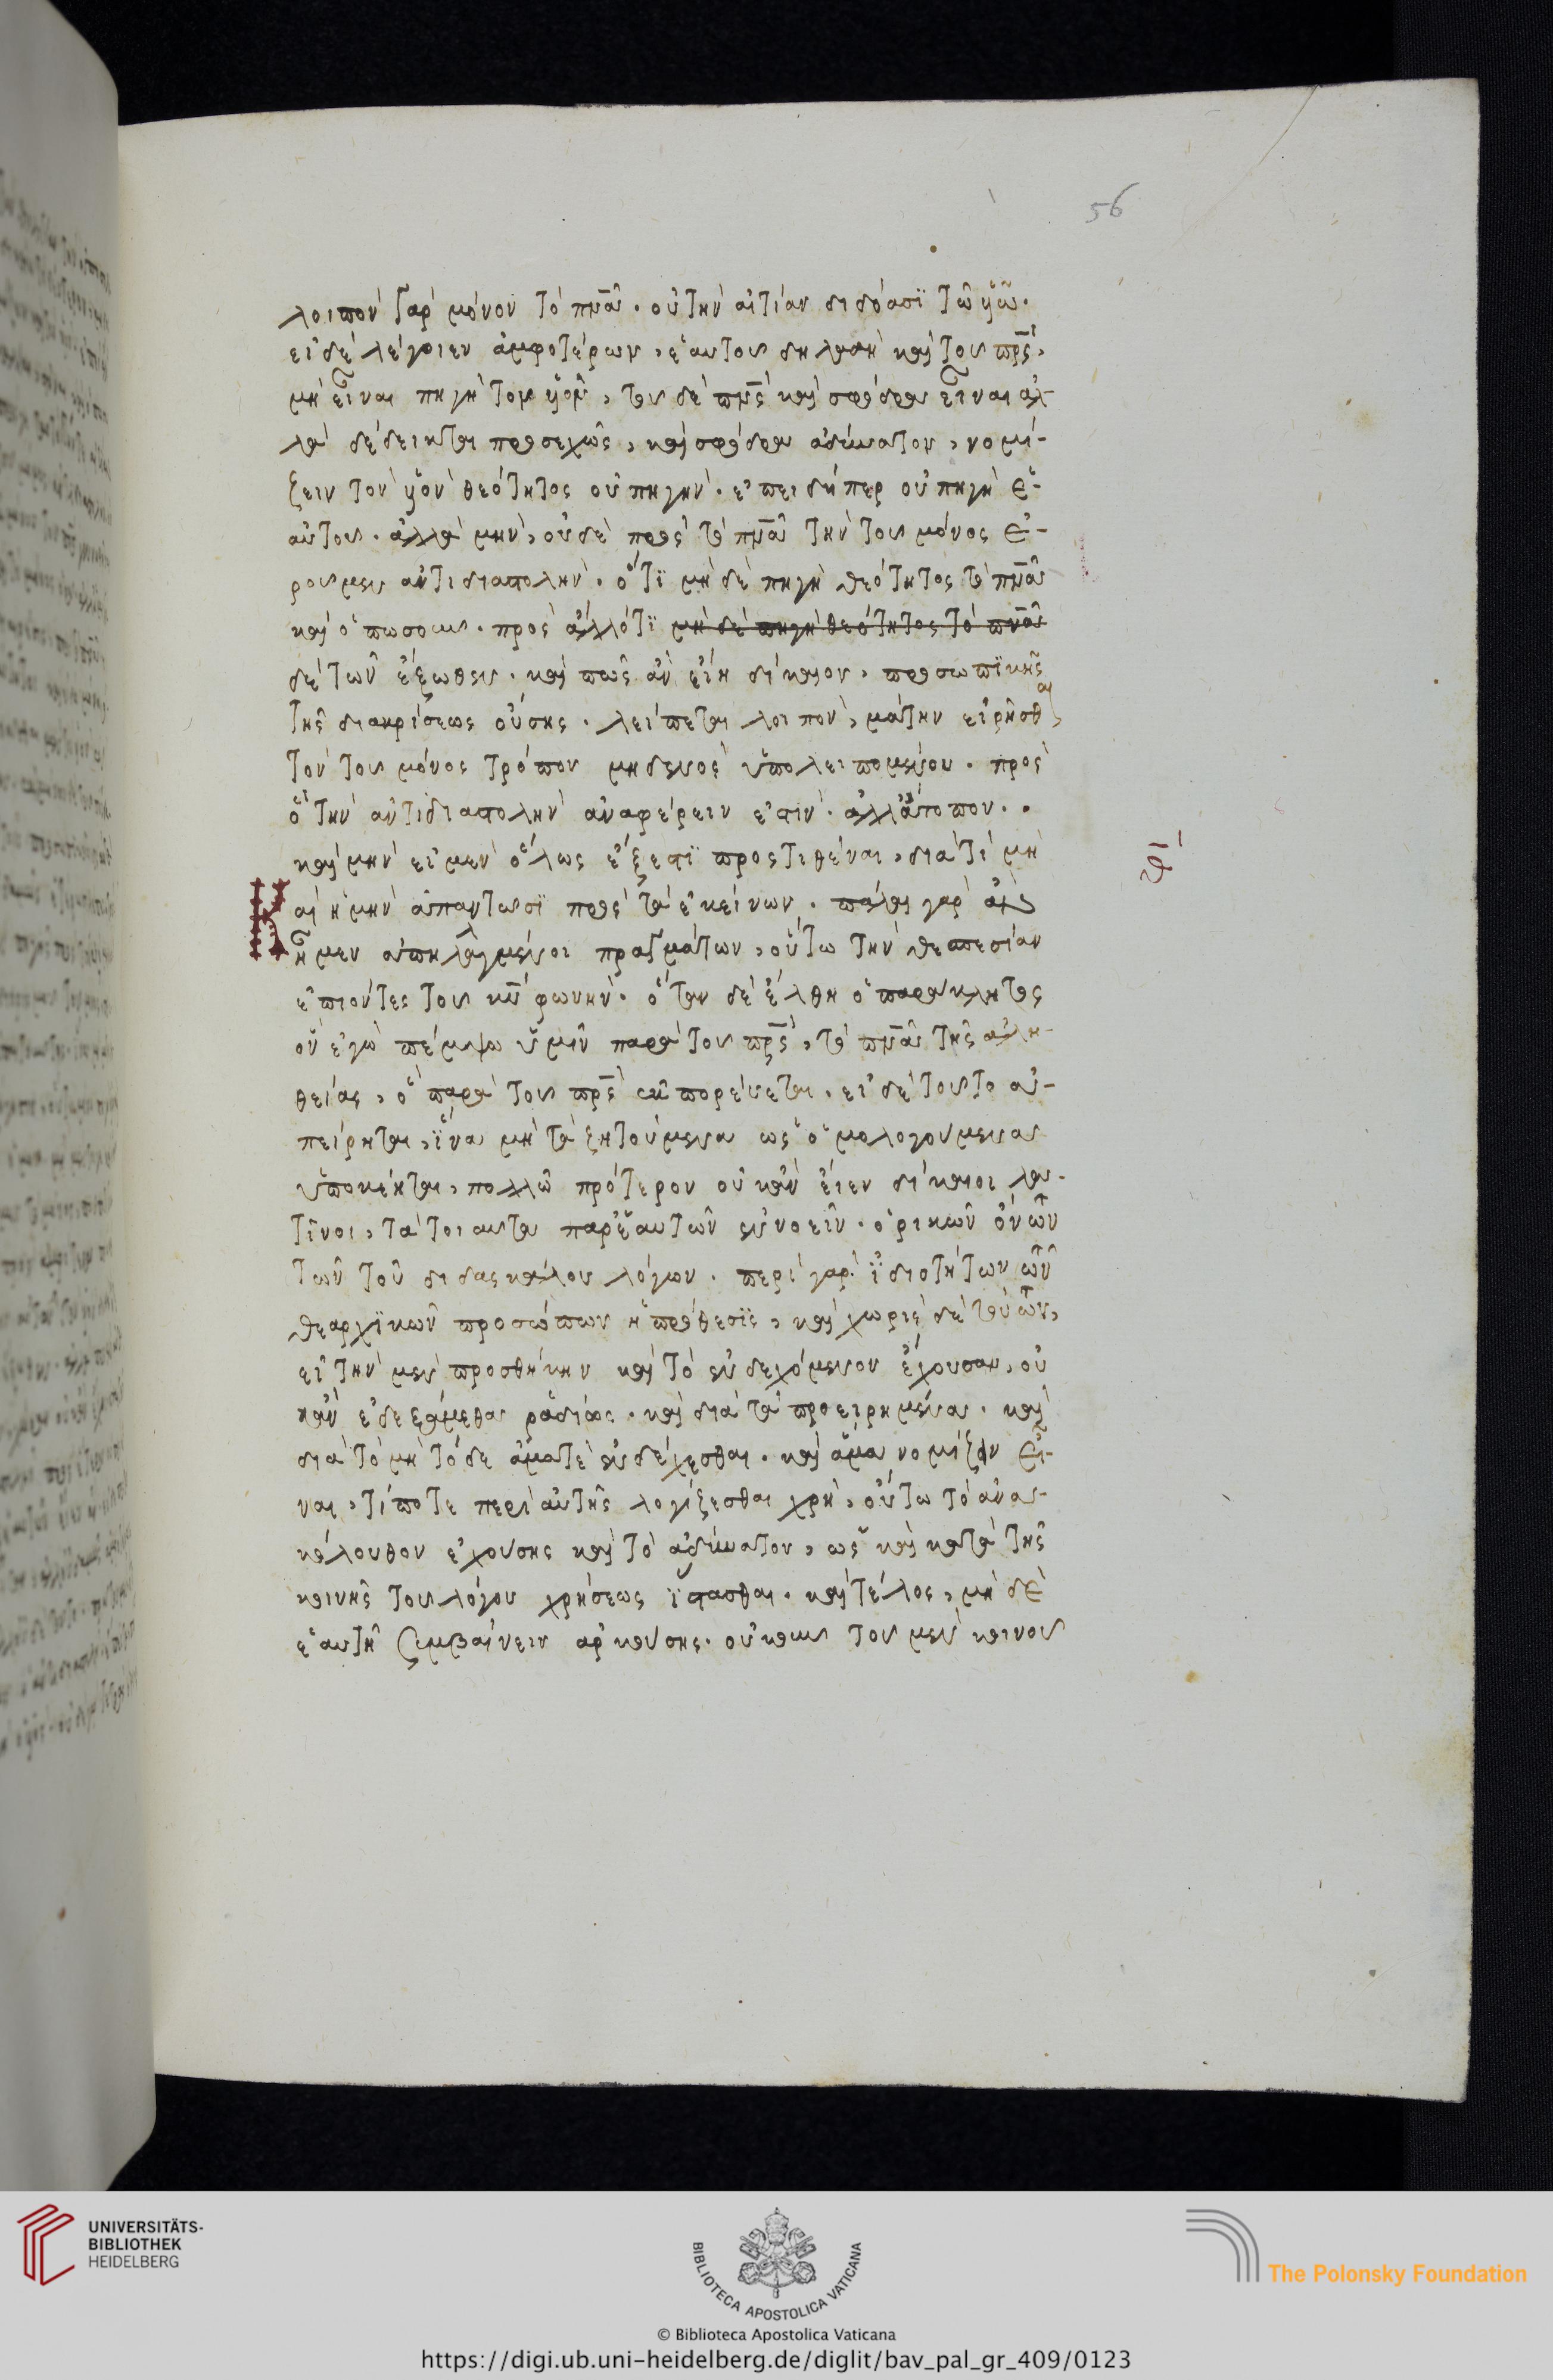 56
λοιπὸν γὰρ μόνον τὸ πν̅α̅. οὐ τὴν αἰτίαν διδόασϊ τῶ υἱῶ.
εἰ δὲ λέγοιεν ἀμφοτέρων, ἑαυτοῦ δηλαδὴ καὶ τοῦ πρ̅ς̅,
μὴ εἶναι πηγὴ τὸν υἱὸν, τοῦ δὲ πν̅ς̅ καὶ σφόδρα εἶναι ἀλ-
λὰ δέδεικται προσεχῶς, καὶ σφόδρα ἀδύνατον, νομί-
ζειν τὸν υἱὸν θεότητος οὐ πηγὴν. ἐπειδήπερ οὐ πηγὴ ἑ-
αυτοῦ. ἀλλὰ μὴν, οὐδὲ πρὸς τὸ πν̅α̅ τὴν τοῦ μόνος ἐ-
ροῦμεν ἀντιδιαστολὴν. ὅτϊ μὴ δὲ πηγὴ θεότητος τὸ πν̅α̅
καὶ ὁπωσοῦν. πρὸς ἄλλό τϊ μὴ δὲ πηγὴ θεότητος τὸ πν̅α̅
δὲ τῶν ἔξωθεν. καὶ πῶς ἂν εἴη δίκαιον, προσωπϊκῆς
τῆς διακρίσεως οὔσης. λείπεται λοιπὸν, μάτην εἰρῆσθαι
τὸν τοῦ μόνος τρόπον μηδενὸς ὑπολειπομένου. πρὸς
ὃ τὴν ἀντιδιαστολὴν ἀναφέρειν ἐστὶν. ἀλλ' ἄτοπον..
καὶ μὴν εἰ μὲν ὅλως ἔξεστϊ προστιθέναι, διατί μὴ
Καὶ ἡμὴν ἁπαντῶσϊ πρὸς τὰ ἐκείνων. πάλαι γὰρ ἂν
ἦμεν ἀπηλλαγμένοι πραγμάτων, οὕτω τὴν θεσπεσίαν
ἐπιόντες τοῦ κυ̅ φωνὴν. ὅταν δὲ ἔλθη ὁ παράκλητος
ὃν ἐγὼ πέμψω ὑμῖν παρὰ τοῦ πρ̅ς̅, τὸ πν̅α̅ τῆς ἀλη-
θείας, ὃ παρὰ τοῦ πρ̅ς̅ ἐκπορεύεται. εἰ δὲ τοῦτο ἀ-
πείρηται, ἵνα μὴ τὰ ζητούμενα ὡς ὁμολογούμενα
ὑποκέηται, πολλῶ πρότερον οὐκ ἂν εἶεν δίκαιοι λα-
τῖνοι, τὰ τοιαῦτα παρ' ἑαυτῶν ἐννοεῖν. ὁρικῶν ὄντων
τῶν τοῦ διδασκάλου λόγων. περὶ γὰρ ἰδιοτήτων τῶν
θεαρχϊκῶν προσώπων ἡ πρόθεσϊς, καὶ χωρὶς δὲ τούτων,
εἰ τὴν μὲν προσθήκην καὶ τὸ ἐνδεχόμενον ἔχουσαν, οὐ
κἂν ἐδεξάμεθα ῥαδίως. καὶ διὰ τὰ προειρημένα. καὶ
διὰ τὸ μὴ τόδε ἅμα τὲ ἐνδέχεσθαι. καὶ ἅμα νομίζειν εἶ-
ναι, τίποτε περὶ αὐτῆς λογίζεσθαι χρὴ, οὕτω τὸ ἀνα-
κόλουθον ἐχούσης καὶ τὸ ἀδύνατον, ὡς καὶ κατὰ τῆς
κοινῆς τοῦ λόγου χρήσεως ἵστασθαι. καὶ τέλος, μὴ δὲ
ἑαυτῆ συμβαίνειν ἀρκούσης. οὐκοῦν τοῦ μὲν κοινοῦ
UNIVERSITÄTS-
BIBLIOTHEK
HEIDELBERG
BIBLIOTECA APOSTOLICA VATICANA
The Polonsky Foundation
© Biblioteca Apostolica Vaticana
https://digi.ub.uni-heidelberg.de/diglit/bav_pal_gr_409/0123